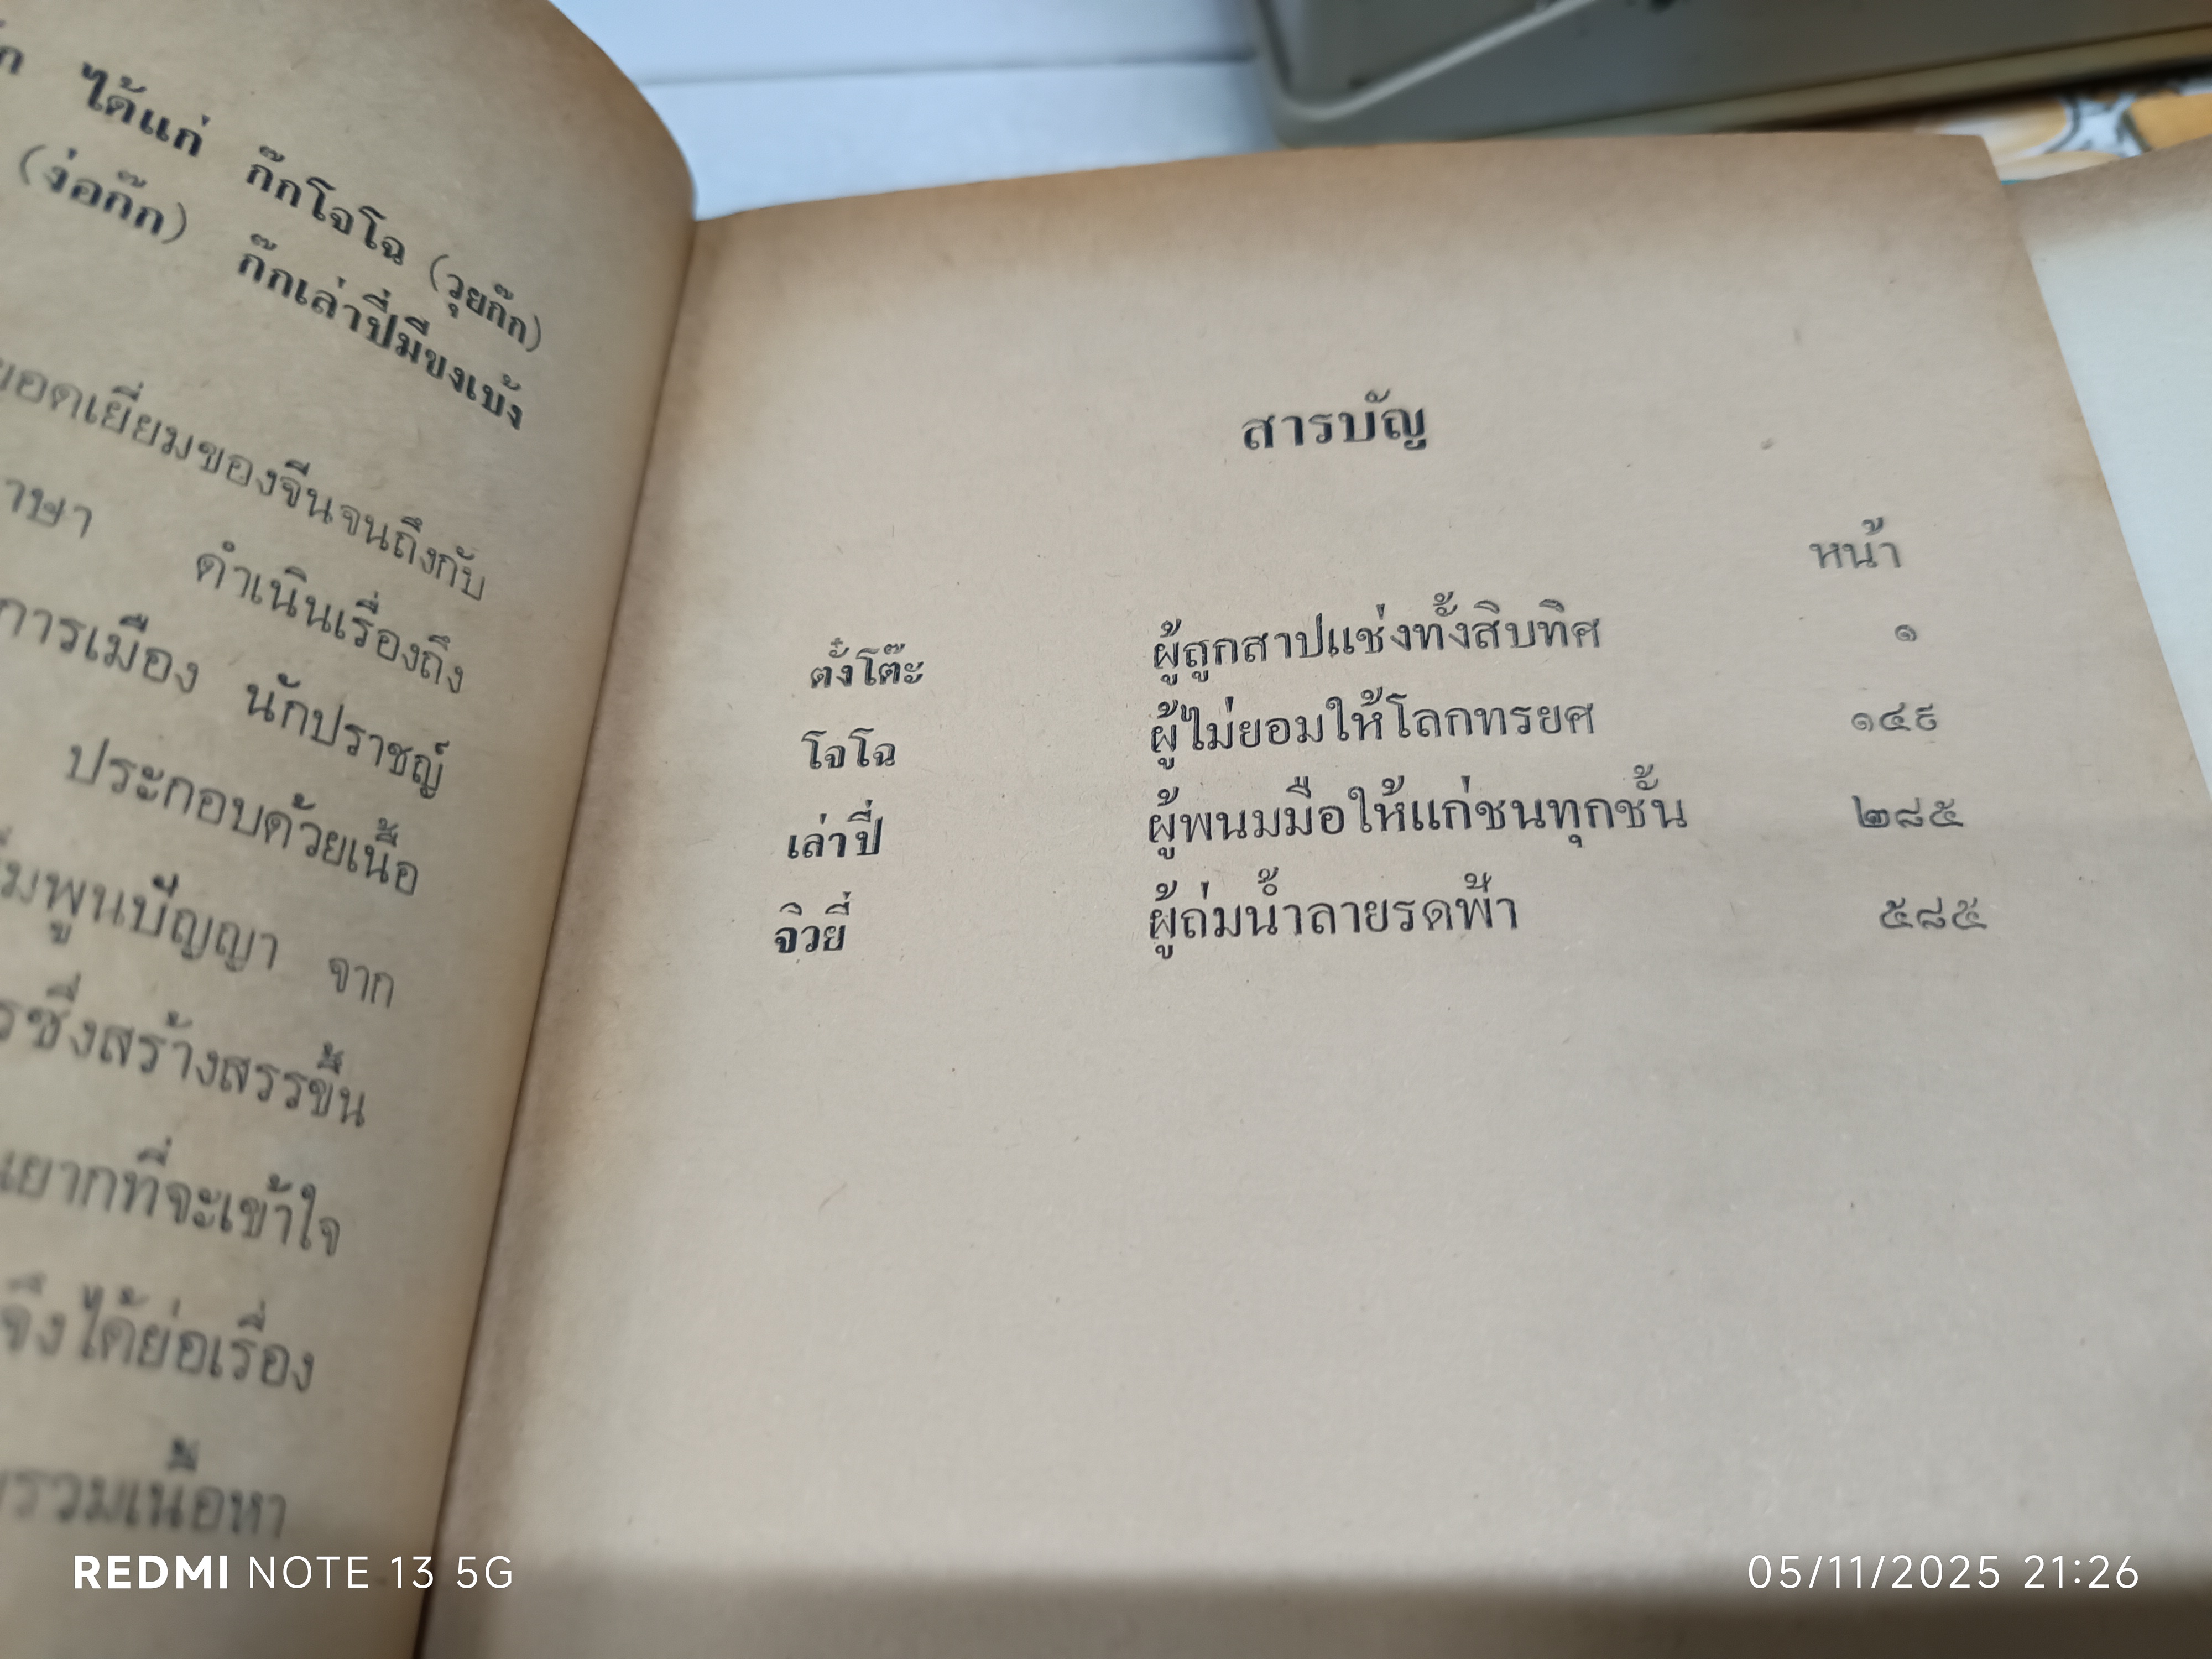 ได้แก่ ก๊กโจโฉ (วุยก๊ก)
(ง่อก๊ก) ก๊กเล่าปี่มีขงเบ้ง
ยอดเยี่ยมของจีนจนถึงกับ
ดำเนินเรื่องถึง
การเมือง นักปราชญ์
ประกอบด้วยเนื้อ
มพูนปัญญา จาก
ซึ่งสร้างสรรขึ้น
ยากที่จะเข้าใจ
จึงได้ย่อเรื่อง
รวมเนื้อหา
สารบัญ
หน้า
ตั๋งโต๊ะ ผู้ถูกสาปแช่งทั้งสิบทิศ ๑
โจโฉ ผู้ไม่ยอมให้โลกทรยศ ๑๔๙
เล่าปี่ ผู้พนมมือให้แก่ชนทุกชั้น ๒๘๕
จิวยี่ ผู้ถ่มน้ำลายรดฟ้า ๕๘๕
REDMI NOTE 13 5G
05/11/2025 21:26